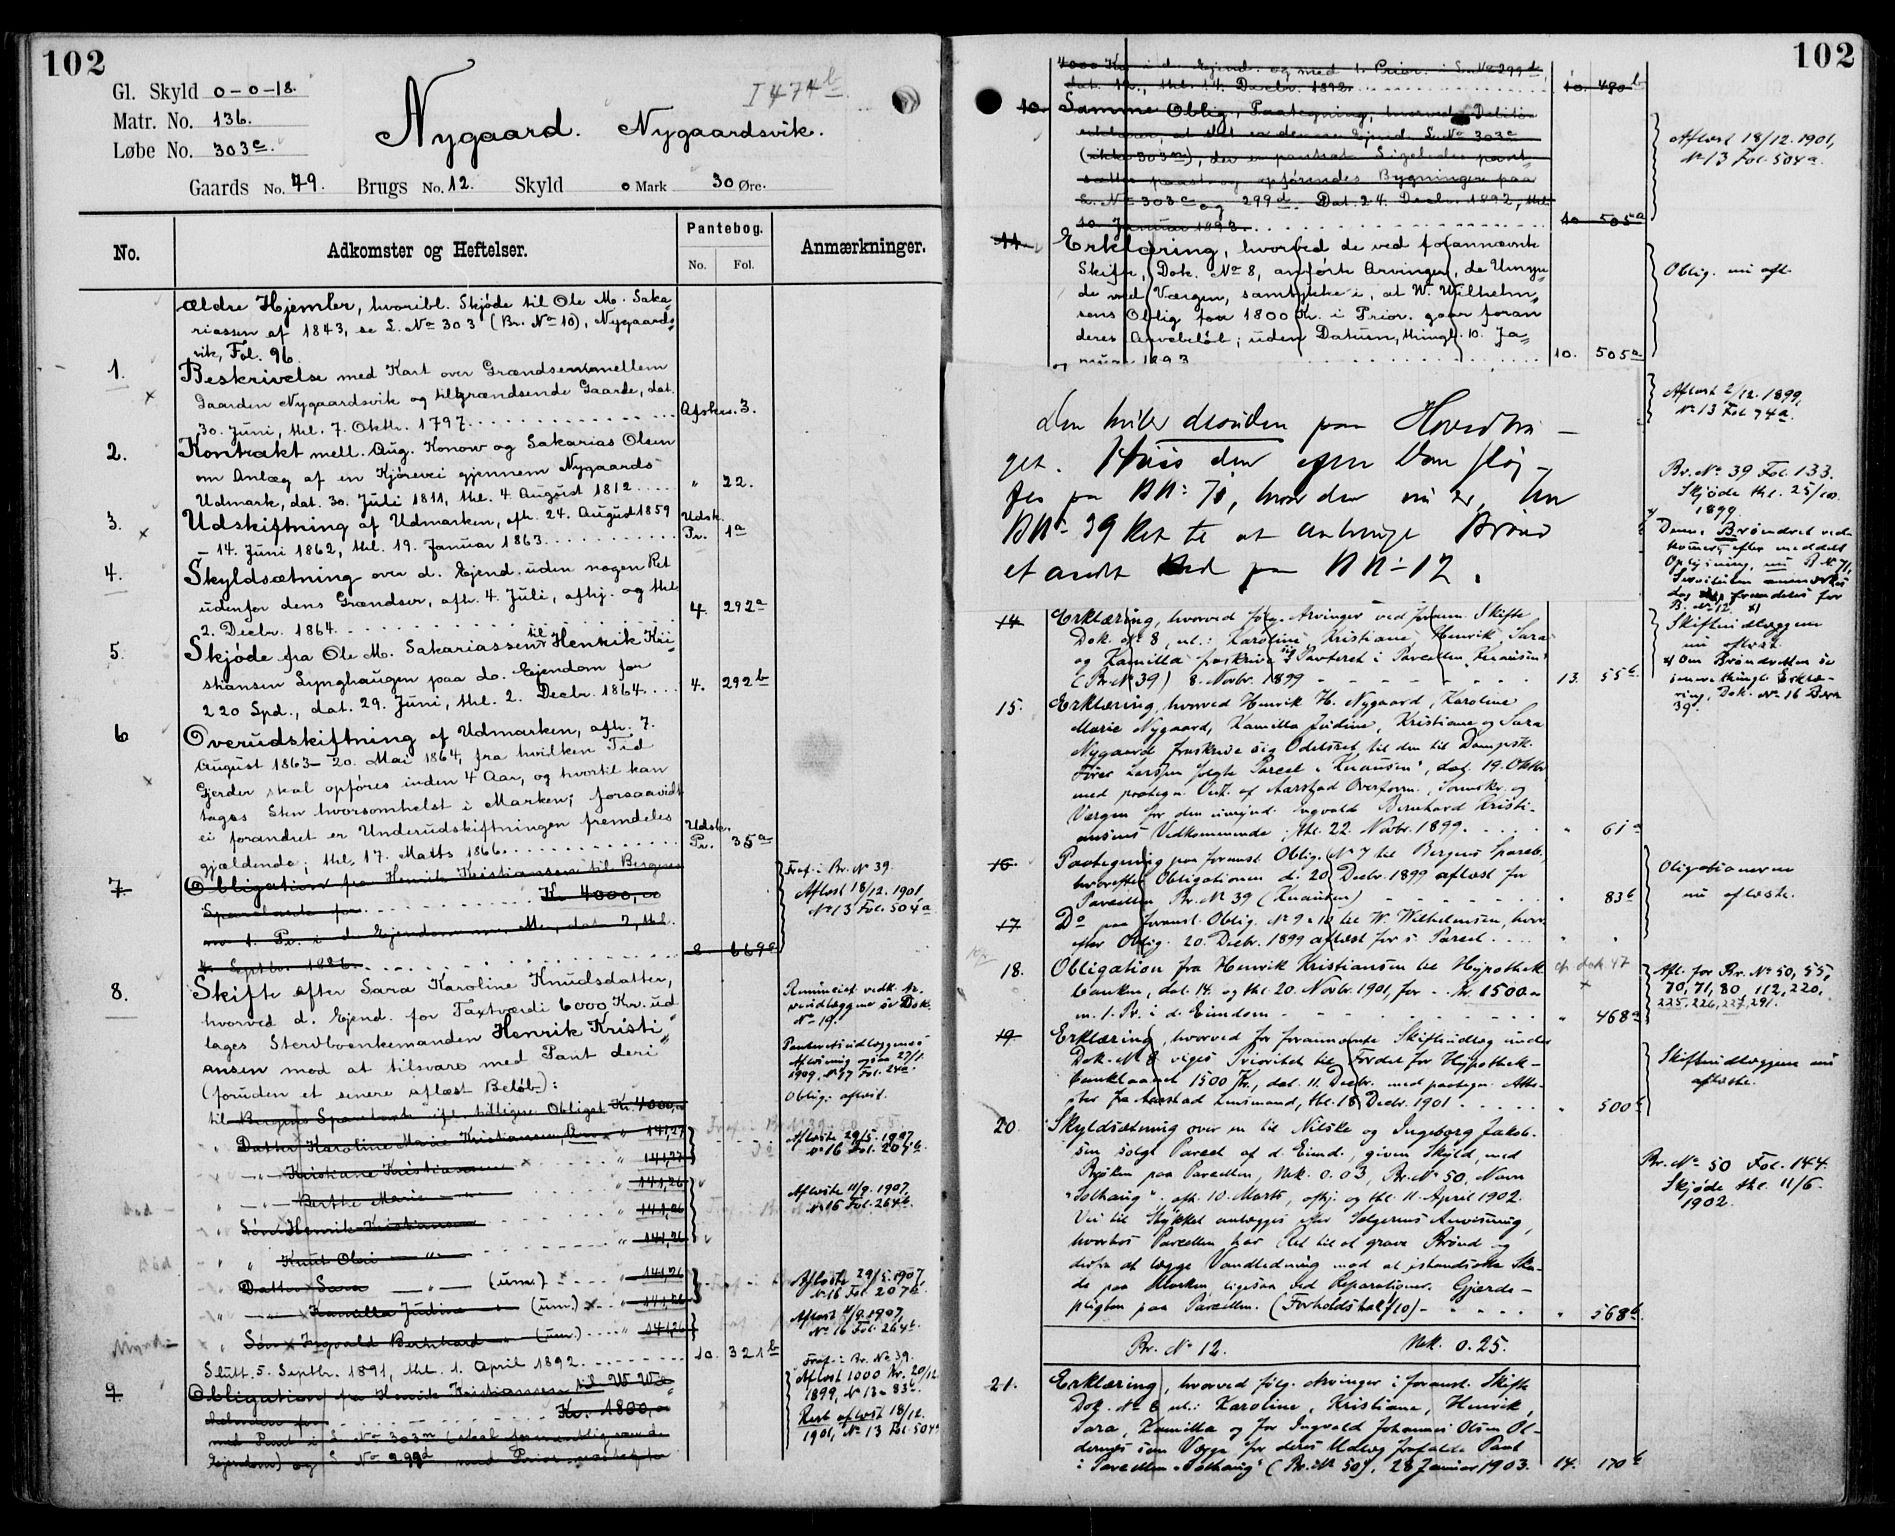 102
Gl. Skyld 0-0-18.
Matr. No. 136.
Løbe No. 303c.
I 474b
Nygaard. Nygaardsvik.
Gaards No. 79. Brugs No. 12. Skyld 0 Mark 30 Øre.
No. Adkomster og Heftelser. Pantebog. Anmærkninger.
No. Fol.
ældre Hjemler, hvoribl. Skjøde til Ole M. Saka
riassen af 1843, se L. No 303 (Br. No 10), Nygaards
vik, Fol. 96.
1. Beskrivelse med Kart over Grændserne mellem
Gaarden Nygaardsvik og tilgrændsende Gaarde, dat.
30. Juni, thl. 7. Oktbr. 1797. Afskr. 3.
2. Kontrakt mell. Aug. Konow og Sakarias Olsen
om Anlæg af en Kjørevei gjennem Nygaards
Udmark, dat. 30. Juli 1811, thl. 4. August 1812 " 22.
3. Udskiftning af Udmarken, afh. 24. August 1859 Udsk.
- 14. Juni 1862, thl. 19. Januar 1863. Pr. 1a
4. Skyldsætning over d. Ejend. uden nogen Ret
udenfor dens Grændser, afh. 4. Juli, afhj. og thl.
2. Decbr. 1864. 4. 292a
5. Skjøde fra Ole M. Sakariassen til Henrik Kri
stiansen Lynghaugen paa do. Ejendom for
220 Spd., dat. 29. Juni, thl. 2. Decbr. 1864. 4. 292b
6 Overudskiftning af Udmarken, afh. 7.
August 1863 - 20. Mai 1864, fra hvilken Tid
Gjerder skal opføres inden 4 Aar, og hvortil kan
tages Sten hvorsomhelst i Marken; forsaavidt
ei forandret er Underudskiftningen fremdeles
gjældende; thl. 17. Matts 1866. Udsk. Pr. 35a
7. Obligation fra Henrik Kristiansen til Bergens
Sparebank for Kr. 4000,00
m. 1. Pr. i d. Ejendom
4. Septbr. 1886. 8 669a
Fraf. i Br. No 39.
Aflæst 18/12. 1901
No 13 Fol. 504a
8. Skifte efter Sara Karoline Knudsdatter,
hvorved d. Ejend. for Taxtværdi 6000 Kr. ud
lages Stervboenkemanden Henrik Kristi
ansen mod at tilsvare med Pant deri
(foruden et senere aflæst Beløb):
til Bergens Sparebank ifl. tidligere Obligat. Kr. 4000,00
" Datter Karoline Marie Kristiansen " 141,27
" -"- Kristiane Kristiansen " 141,27
" -"- Berthe Marie -"- " 141,26
" Søn Henrik Kristiansen " 141,26
" " Knut Olai -"- " 141,26
" Datter Sara -"- (um.) " 141,26
" -"- Kamilla Judine " (um.) " 141,26
" Søn Ingvald Bernhard " (um.) " 141,26
Slutt. 5. Septbr. 1891, thl. 1. April 1892. 10. 321b
Renunciat. vedk. Ar-
veudlæggene se Dok.
No 19.
Oblig. aflæst.
Aflæste 29/5. 1907,
No 16 Fol. 207b.
Aflæste 11/9. 1907,
No 16 Fol. 264b.
Aflæste 29/5. 1907
No 16 Fol. 207b.
Aflæst 11/9. 1907,
No 16 Fol. 264b.
9. Obligation fra Henrik Kristiansen til W. Wil
helmsen for Kr. 1800,00
med Pant i L. No 303m (skal formentlig være d.
Ejendom) og L. No 299d med Prior. næstefter
Fraf. i Br. No 39.
Aflæst 1000 Kr. 20/12
1899, No 13 - 83b.
Rest aflæst 18/12.
1901, No 13 Fol. 504a
102
4000 Kr. i d. Ejend. og med 1. Prior. i L. No 299d,
dat. 12., thl. 14. Decbr. 1892. 10. 490b
10. Samme Oblig. Paategning, hvorved Debitor
erklærer, at det er denne Ejend. L. No 303c
(ikke 303m), der er pantsat. Ligeledes pant
sættes paast. og opførendes Bygninger paa
L. No 303c og 299d. Dat. 24. Decbr. 1892, thl.
10. Januar 1893. 10 505a
Aflæst 18/12. 1901,
No 13 Fol. 504a.
11. Erklæring, hvorved de ved forannævnte
Skifte, Dok. No 8, anførte Arvinger, de Umyn
dige med Værgen, samtykke i, at W. Wilhelm
sens Oblig. for 1800 Kr. i Prior. gaar foran
deres Arvebeløb; uden Datum, thingl. 10. Ja
nuar 1893 10. 505a
Oblig. nu afl.
den hviler desuden paa Hovedbru-
get. Hviis den efter Dom fløj-
tes paa BN: 71, hvor den nu er, har
BN: 39 Ret til at anbringe Brønd
et andet Sted paa BN: 12.
Aflæst 2/12. 1899,
No 13 Fol. 74a.
Br. No 39 Fol. 133.
Skjøde thl. 25/10.
1899
Denne Brøndret ved-
kommer, efter meddelt
Oplysning, nu B. N. 71,
B. No 12. x)
Skifteudlæggene
nu aflæst.
x) Om Brøndretten se
imidl. thinglst. Erklæ-
ring, Dok. No 16 Br. No
39.
14. Erklæring, hvorved følg. Arvinger ved foranst. Skifte
Dok. No 8, nl.: Karoline, Kristiane, Henrik, Sara
og Kamilla fraskrive sig Panteret i Parcellen "Knausen"
(Br. No 39) 8. Novbr. 1899 13. 55b
15. Erklæring, hvorved Henrik H. Nygaard, Karoline
Marie Nygaard, Kamilla Judine, Kristiane og Sara
Nygaard fraskrive sig Odelsret til den til Dampsk.
fører Larsen solgte Parcel "Knausen", dat. 19. Oktbr.
med paategn. Vidt. af Aarstad Overform., Formsk. og
Værgen for den umynd. Ingvald Bernhard Kristi-
ansens Vedkommende; thl. 22. Novbr. 1899. " 61a
16. Paategning paa foranst. Oblig. No 7 til Bergens Spareb.,
hvorefter Obligationen d. 20. Decbr. 1899 aflæst for
Parcellen Br. No 39 (Knausen) " 83b
17. Do paa foranst. Oblig. No 9-10 til W. Wilhelmsen, hvor-
efter Oblig. 20. Decbr. 1899 aflæst for s. Parcel " "
Obligationerne
nu aflæste.
18. Obligation fra Henrik Kristiansen til Hypothek-
banken, dat. 14. og thl. 20. Novbr. 1901, for - Kr. 1500.00
m. 1. Pr. i d. Eiendom " 468a
cfr. dok 47
Afl. for Br. No 50, 55,
70, 71, 80, 112, 220,
225, 226, 227, 291.
19. Erklæring, hvorved for forannævnte Skifteudlæg under
Dok. No 8 viges Prioritet til Fordel for Hypothek-
banklaanet 1500 Kr., dat. 11. Decbr. med paategn. Atte-
ster fra Aarstad Lensmand, thl. 18. Decbr. 1901 " 500b
Skifteudlæggene nu
aflæste.
20. Skyldsætning over en til Nilske og Ingeborg Jakob-
sen solgt Parcel af d. Eiend., given Skyld, med
Brøken paa Parcellen, Mrk. 0.03, Br. No 50, Navn
"Solhaug". afh. 10. Marts, afhj. og thl. 11. April 1902.
Vei til Stykket anlægges efter Sælgerens Anvisning,
hvorhos Parcellen har Ret til at grave Brønd og
derfra at lægge Vandledning mod at istandsætte Ska-
de paa Marken ligesaa ved Reparationer. Gjærde-
pligten paa Parcellen. (Forholdstal 1/10) " 568b.
Br. No 50 Fol. 144.
Skjøde thl. 11/6.
1902.
Br. No 12. Mrk. 0.25.
21. Erklæring, hvorved følg. Arvinger i foranst. Skifte
Dok. No 8 nl.: Karoline, Kristiane, Henrik,
Sara, Kamilla og for Ingvald Johannes Olsen Ol-
dernes som Værge for deres Udlæg frafalde Pant
i Parcellen "Solhaug" (Br. No 50). 28 Januar 1903. 14. 170b